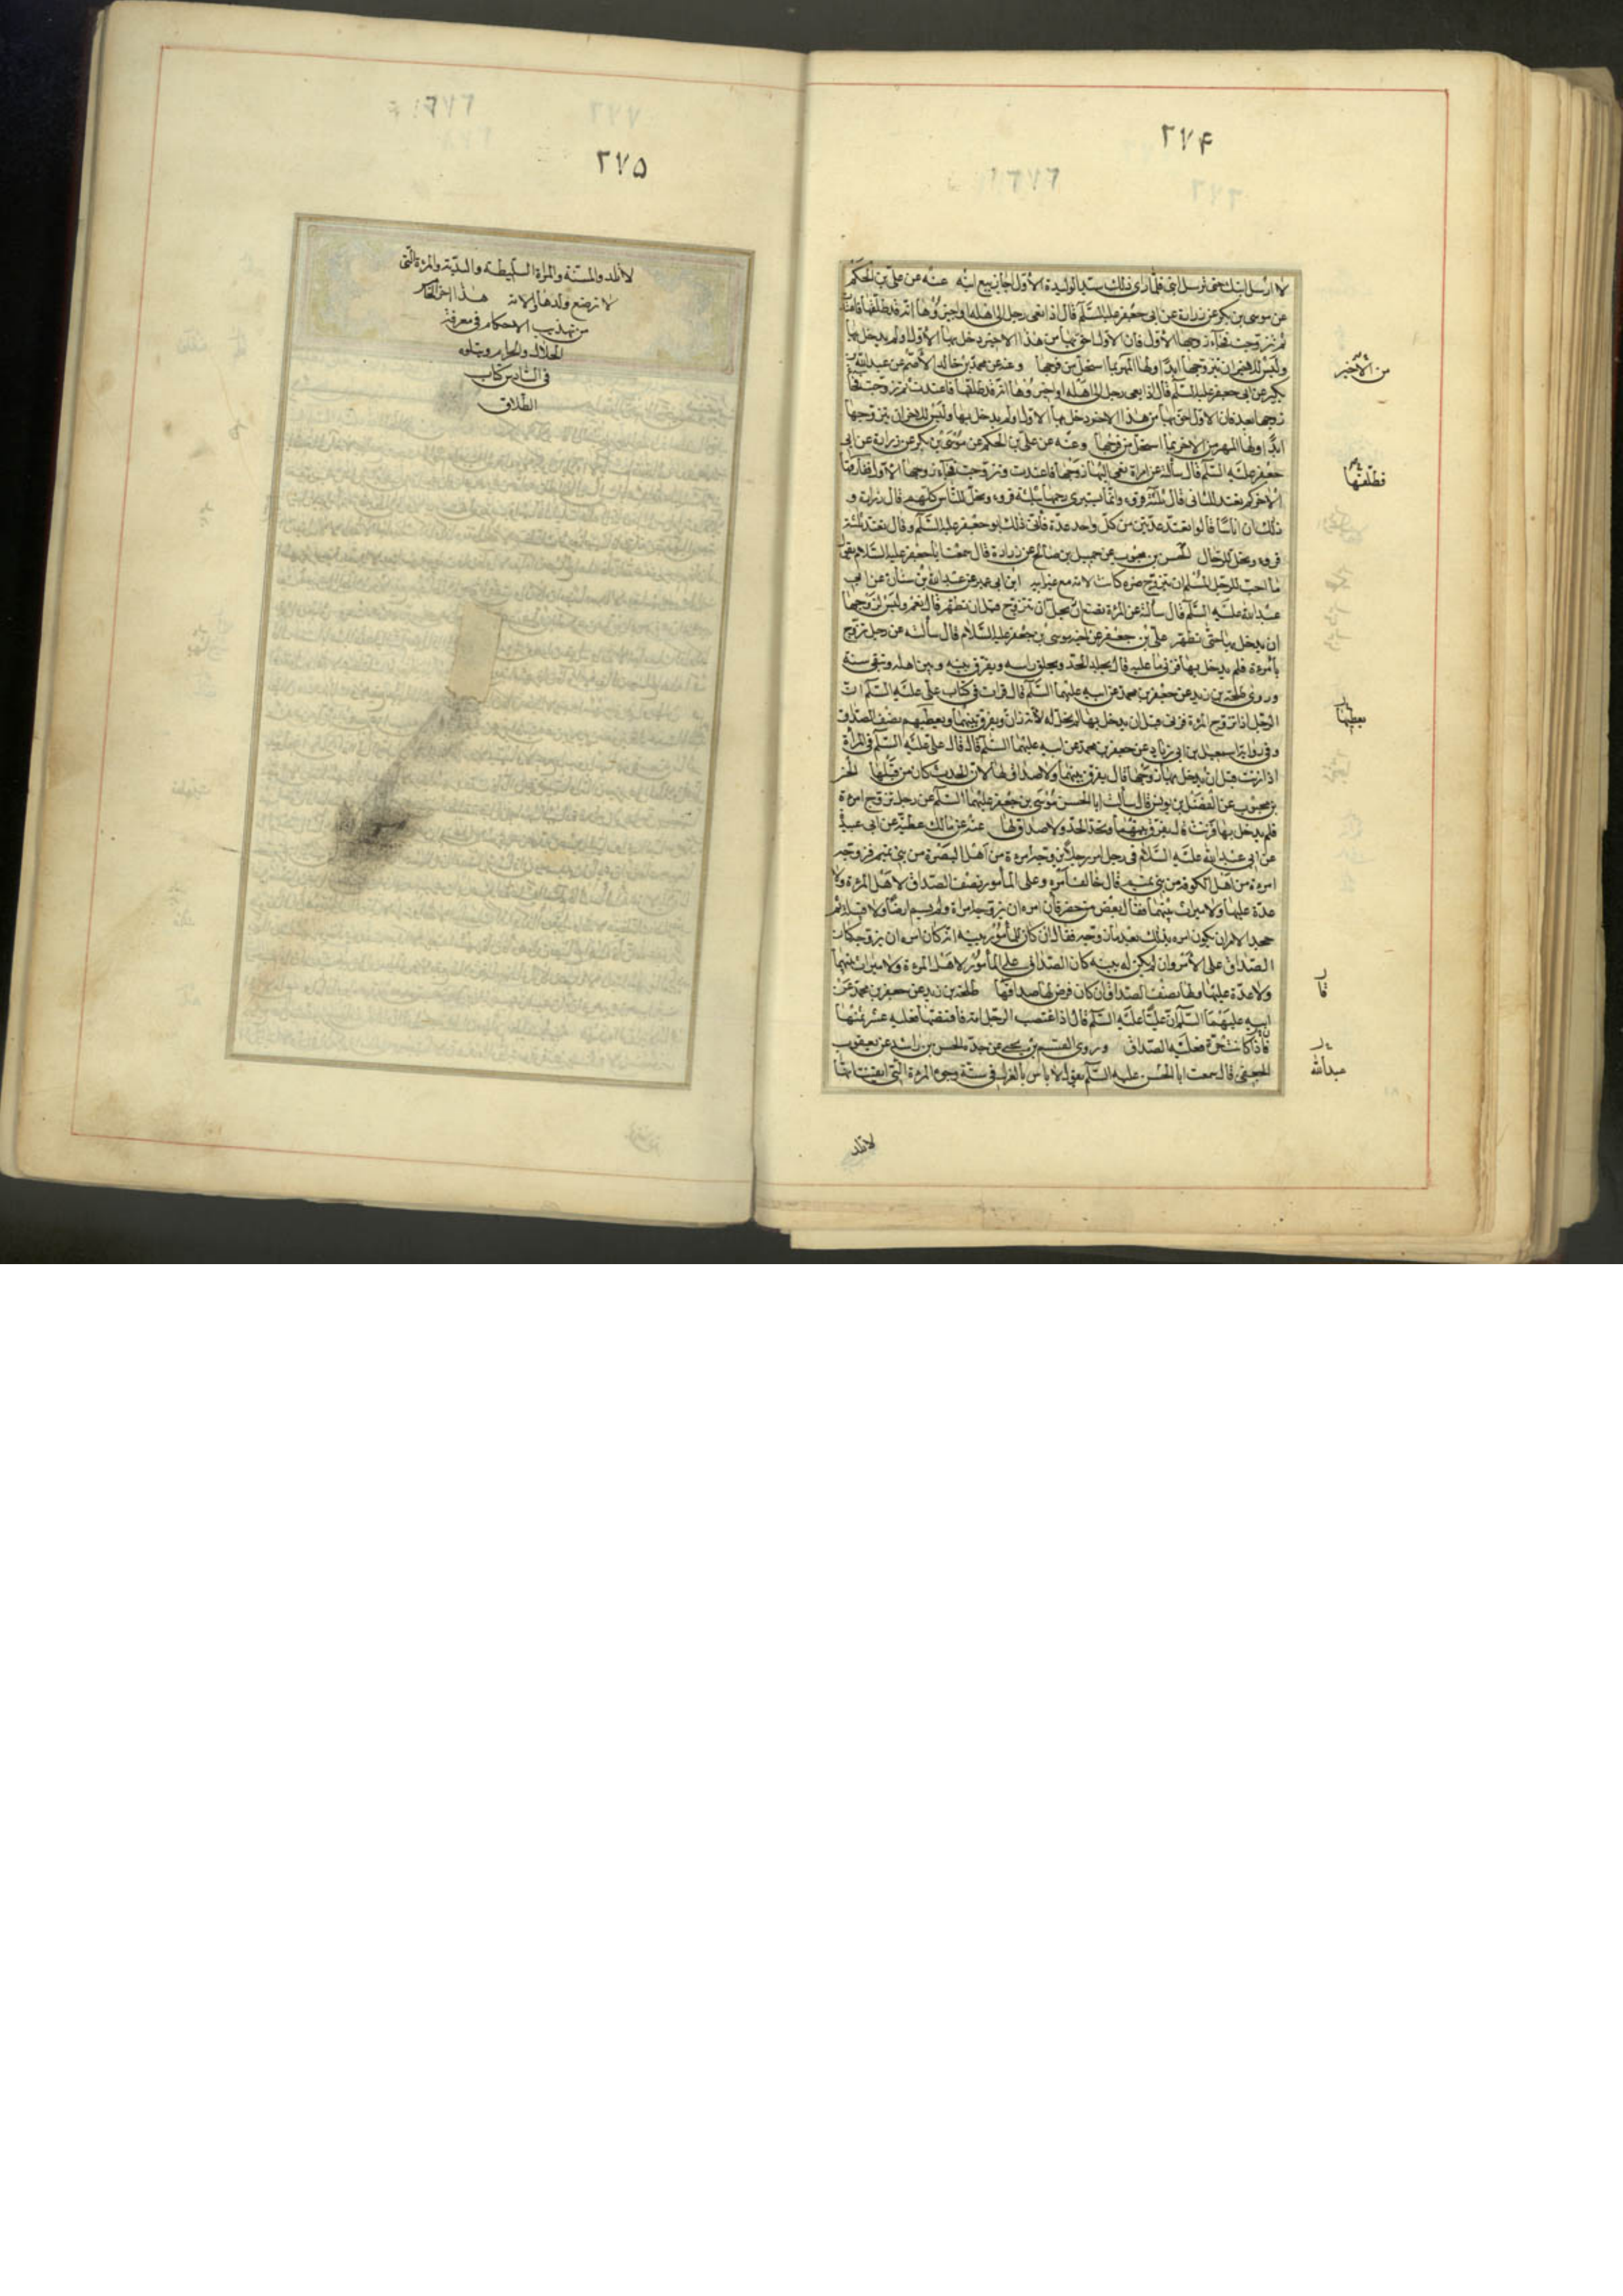 ٢٧۴
لا ارسل ابنك حتى ترسل ابنى فلما راى ذلك سيد الوليدة الاول اجاز بيع ابنه عنه عن على بن الحكم
عن موسى بن بكر عن زرارة عن ابى جعفر عليه السلم قال اذا نعى رجل الى اهله او خبروها انه قد طلقها فاعتدت
ثم تزوجت فجاء زوجها الاول فان الاول احق بها من هذا الاخير دخل بها الاول او لم يدخل بها
وليس للاخير ان يتزوجها ابدا ولها المهر بما استحل من فرجها وعنه عن محمد بن خالد الاصم عن عبدالله بن
بكير عن ابى جعفر عليه السلم قال اذا نعى رجل الى اهله او خبروها انه قد طلقها فاعتدت ثم تزوجت فجاء
زوجها بعد فان الاول احق بها من هذا الاخير دخل بها الاول او لم يدخل بها وليس للاخير ان يتزوجها
ابدا ولها المهر من الاخر بما استحل من فرجها وعنه عن على بن الحكم عن موسى بن بكر عن زرارة عن ابى
جعفر عليه السلم قال سألته عن امراة نعى اليها زوجها فاعتدت وتزوجت فجاء زوجها الاول ففارقها
الاخر كم تعتد للثانى قال ثلثة قروء وانما يستبرى رحمها بثلثة قروء وتحل للناس كلهم قال زرارة و
ذلك ان اناسا قالوا تعتد عدتين من كل واحد عدة فابى ذلك ابو جعفر عليه السلم وقال تعتد ثلثة
قروء وتحل للرجال الحسن بن محبوب عن جميل بن صالح عن زرارة قال سمعت ابا جعفر عليه السلام يقول
ما احب للرجل المسلم ان يتزوج ضرة كانت لامه مع غير ابيه ابن ابى عمير عن عبدالله بن سنان عن ابى
عبدالله عليه السلم قال سألته عن المرءة تضع ايحل ان تتزوج قبل ان تطهر قال نعم وليس لزوجها
ان يدخل بها حتى تطهر على بن جعفر عن اخيه موسى بن جعفر عليه السلام قال سألته عن رجل تزوج
بامرءة فلم يدخل بها فزنى ما عليه قال يجلد الحد ويحلق راسه ويفرق بينه وبين اهله وينفى سنة
وروى طلحة بن زيد عن جعفر بن محمد عن ابيه عليهما السلم قال قرات فى كتاب على عليه السلم ان
الرجل اذا تزوج المرءة فزنى قبل ان يدخل بها لم تحل له لانه زان ويفرق بينهما ويعطيهم نصف الصداق
وفى رواية اسمعيل بن ابى زياد عن جعفر بن محمد عن ابيه عليهما السلم قال قال على عليه السلم فى المرأة
اذا زنت قبل ان يدخل بها زوجها قال يفرق بينهما ولا صداق لها لان الحدث كان من قبلها الحسن
بن محبوب عن الفضل بن يونس قال سألت ابا الحسن موسى بن جعفر عليهما السلم عن رجل تزوج امرءة
فلم يدخل بها فزنت قال يفرق بينهما وتحد الحد ولا صداق لها عنه عن مالك عطية عن ابى عبيدة
عن ابى عبدالله عليه السلام فى رجل امر رجلا يزوجه امرءة من اهل البصرة من بنى تميم فزوجه
امرءة من اهل الكوفة من بنى تميم قال خالف امره وعلى المأمور نصف الصداق لاهل المرءة ولا
عدة عليها ولا ميراث بينهما فقال بعض من حضر فان امره ان يزوجه امراة ولم يسم ارضا ولا قبيلة ثم
جحد الامر ان يكون امره بذلك بعد ما زوجه فقال ان كان للمأمور بينة انه كان امره ان يزوجه كان
الصداق على الامر وان لم يكن له بينة كان الصداق على المأمور لاهل المرءة ولا ميراث بينهما
ولا عدة عليها ولها نصف الصداق ان كان فرض لها صداقها طلحة بن زيد عن جعفر بن محمد عن
ابيه عليهما السلم ان عليا عليه السلم قال اذا اغتصب الرجل امة فاقتضها فعليه عشر ثمنها
فاذا كانت حرة فعليه الصداق وروى القسم بن يحيى عن جده الحسن بن راشد عن يعقوب
الجعفى قال سمعت ابا الحسن عليه السلم يقول لا باس بالعزل فى ستة وجوه المرءة التى ايقنت انها
من الأخير
فطلقها
يعطيها
قال
عبدالله
لا تلد
٢٧۵
لا تلد والمسنة والمراة السليطة والبذية والمرءة التى
لا ترضع ولدها والامة هذا اخر الخامس
من تهذيب الاحكام فى معرفة
الحلال والحرام ويتلوه
فى السادس كتاب
الطلاق